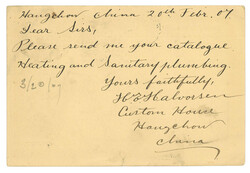 Hangchow China 20th Febr. 07
Dear Sirs,
Please send me your catalogue
Heating and Sanitary plumbing.
Yours faithfully,
3/20/07
H E Halvorsen
Custom House
Hangchow
China